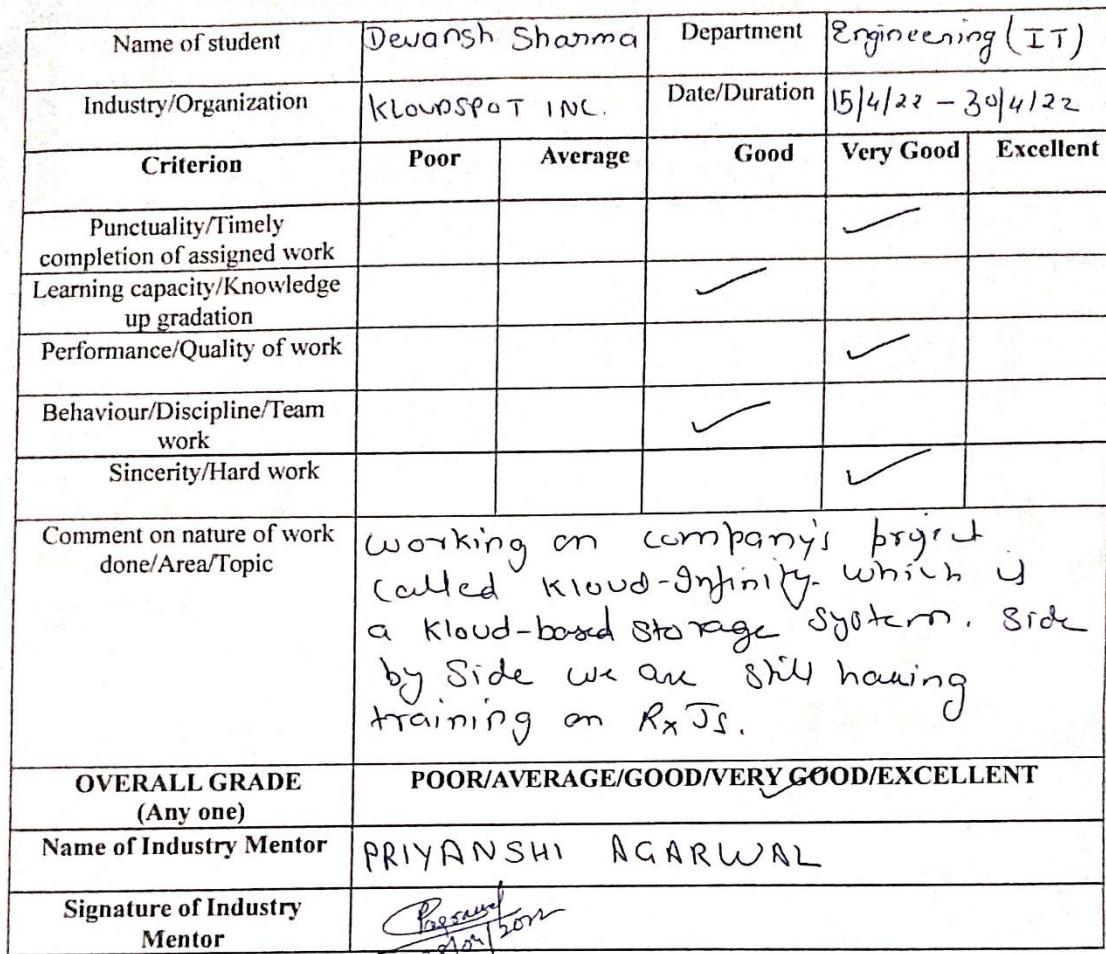 Name of student Devansh Sharma Department Engineering (IT)
Industry/Organization KLOUDSPOT INC. Date/Duration 15/4/22 - 30/4/22
Criterion Poor Average Good Very Good Excellent
Punctuality/Timely
completion of assigned work
Learning capacity/Knowledge
up gradation
Performance/Quality of work
Behaviour/Discipline/Team
work
Sincerity/Hard work
Comment on nature of work
done/Area/Topic
working on company's project
called Kloud-Infinity. which is
a Kloud-based storage system. Side
by Side we are still having
training on RxJs.
OVERALL GRADE
(Any one)
POOR/AVERAGE/GOOD/VERY GOOD/EXCELLENT
Name of Industry Mentor PRIYANSHI AGARWAL
Signature of Industry
Mentor